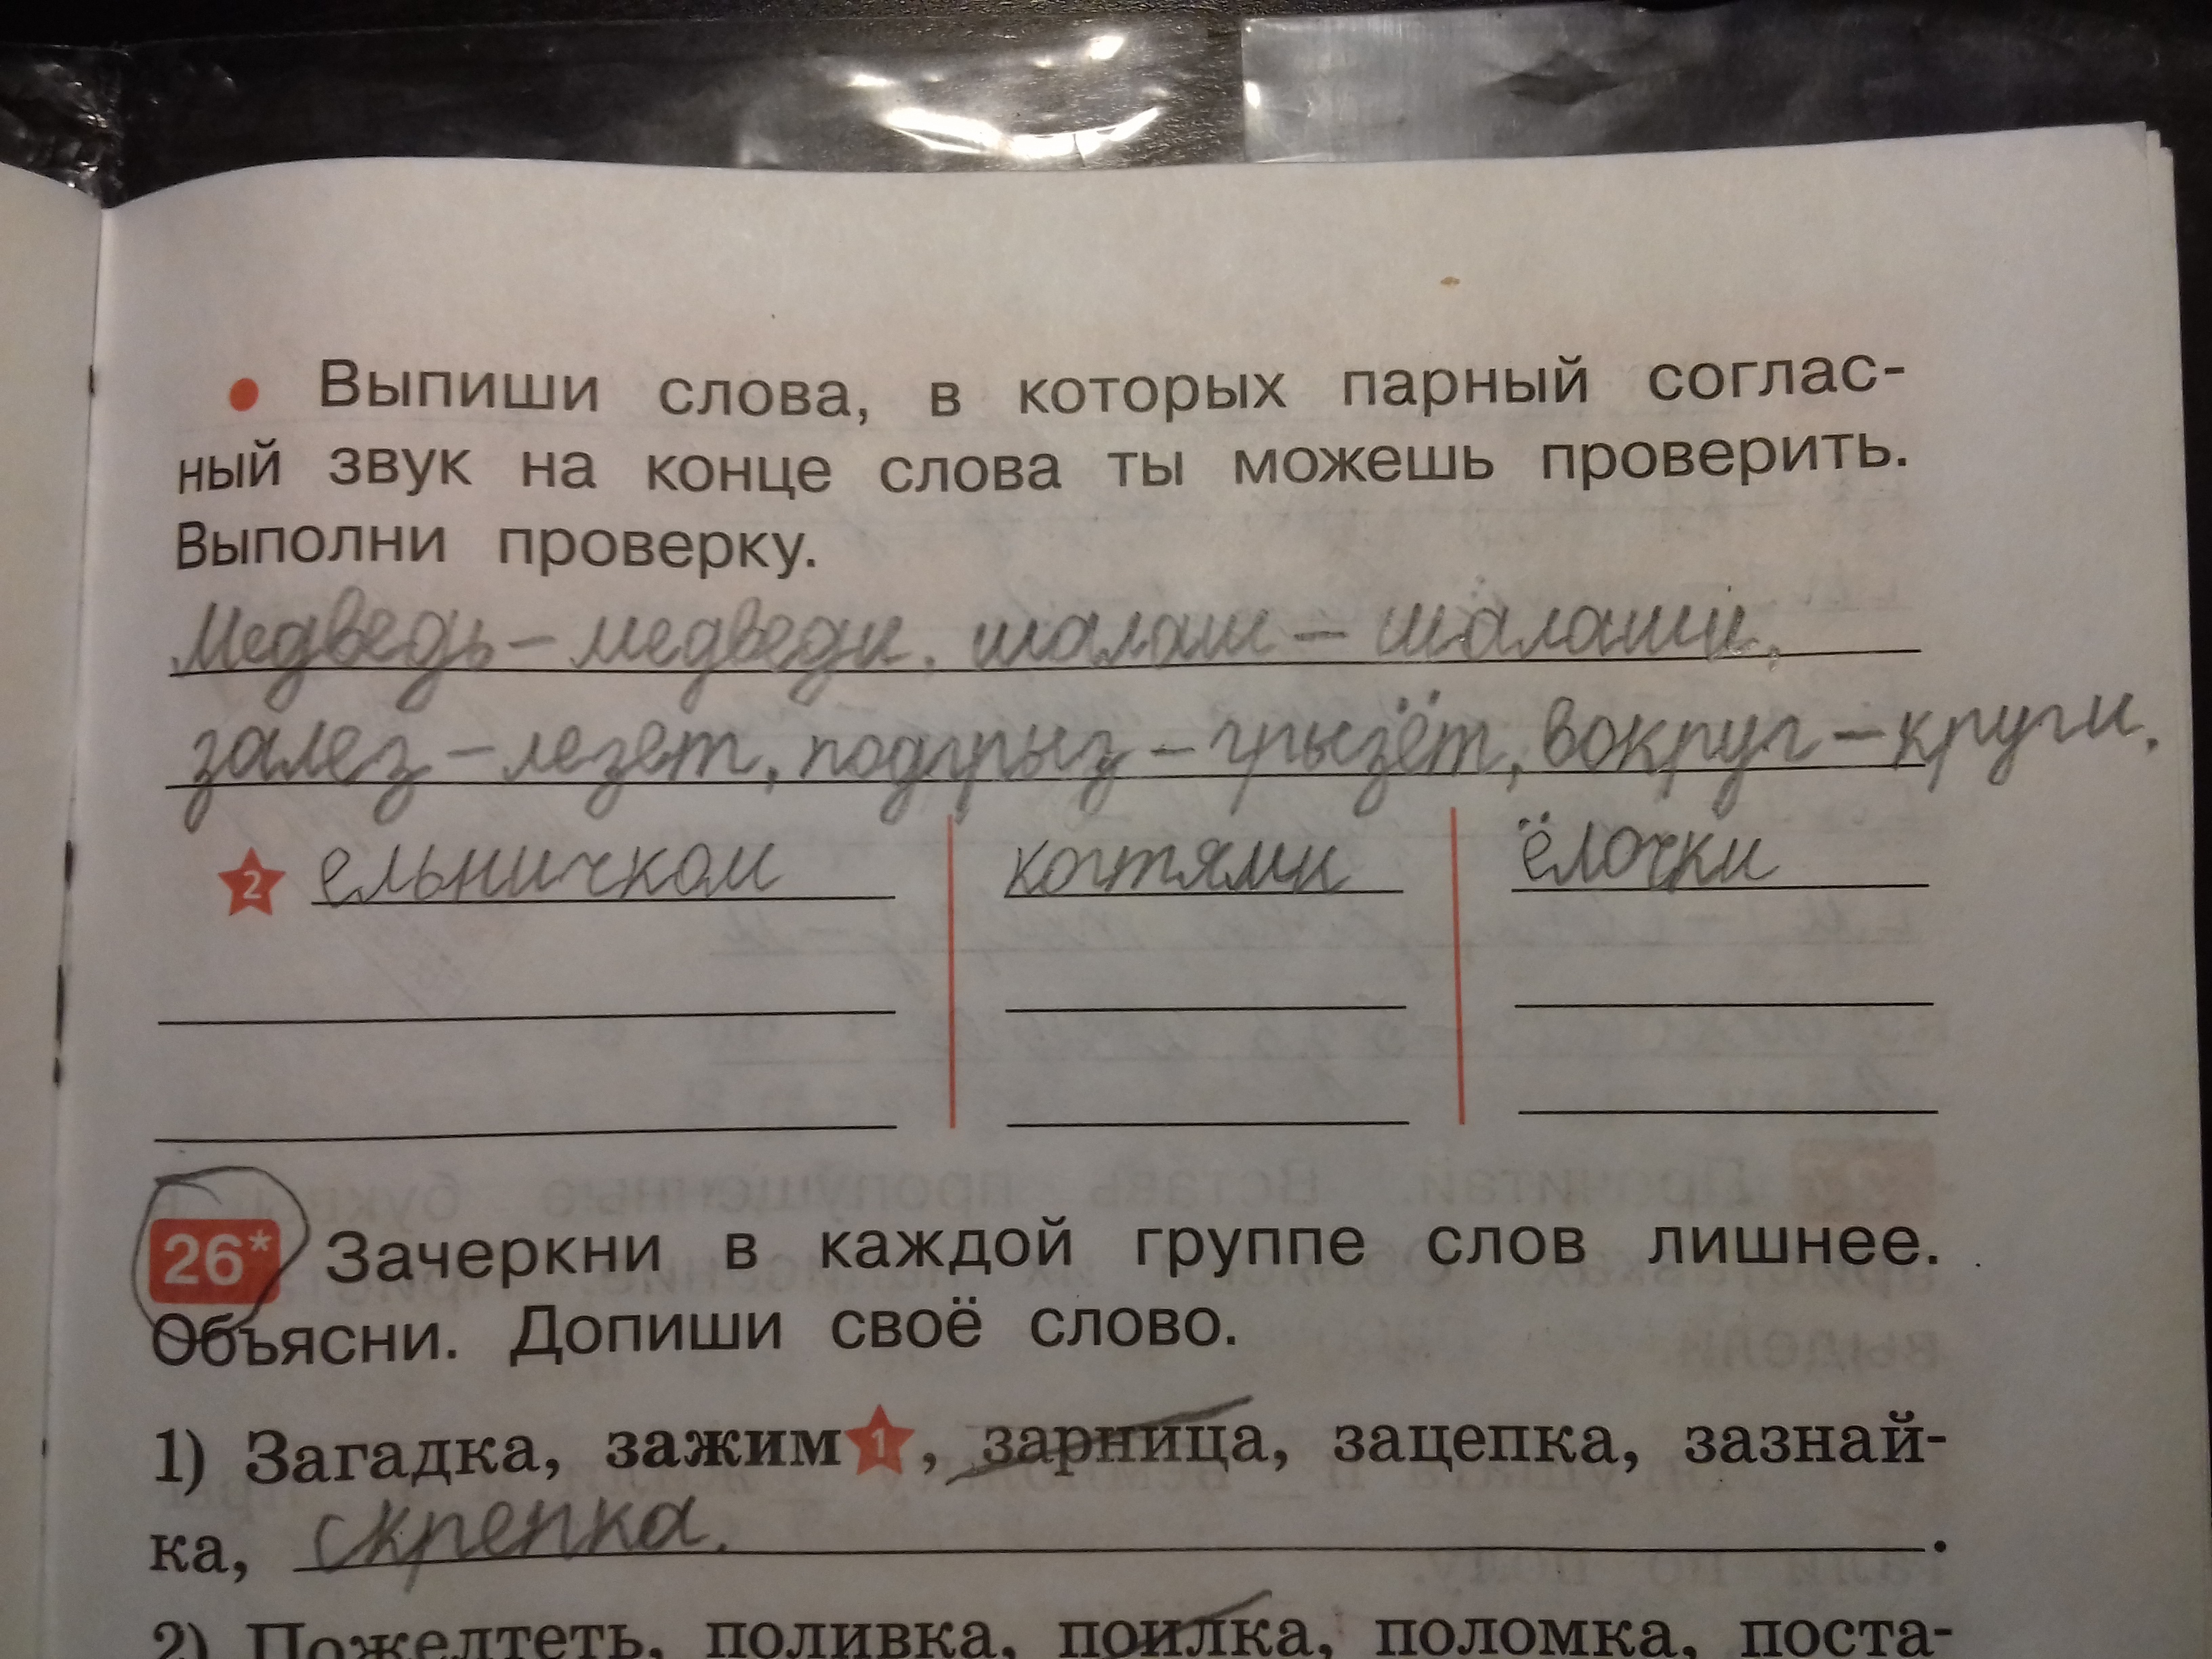 • Выпиши слова, в которых парный соглас-
ный звук на конце слова ты можешь проверить.
Выполни проверку.
Медведь – медведи, шалаш – шалаши,
залез – лезет, подгрыз – грызёт, вокруг – круги.
2 ельничком когтями ёлочки
26* Зачеркни в каждой группе слов лишнее.
Объясни. Допиши своё слово.
1) Загадка, зажим 1, зарница, зацепка, зазнай-
ка, скрепка. .
2) Пожелтеть, поливка, поилка, поломка, поста-